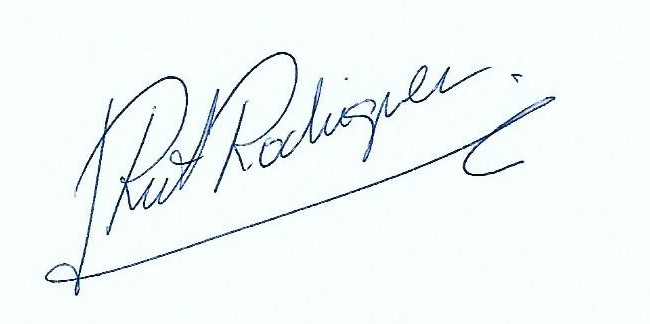 Rut Rodriguez